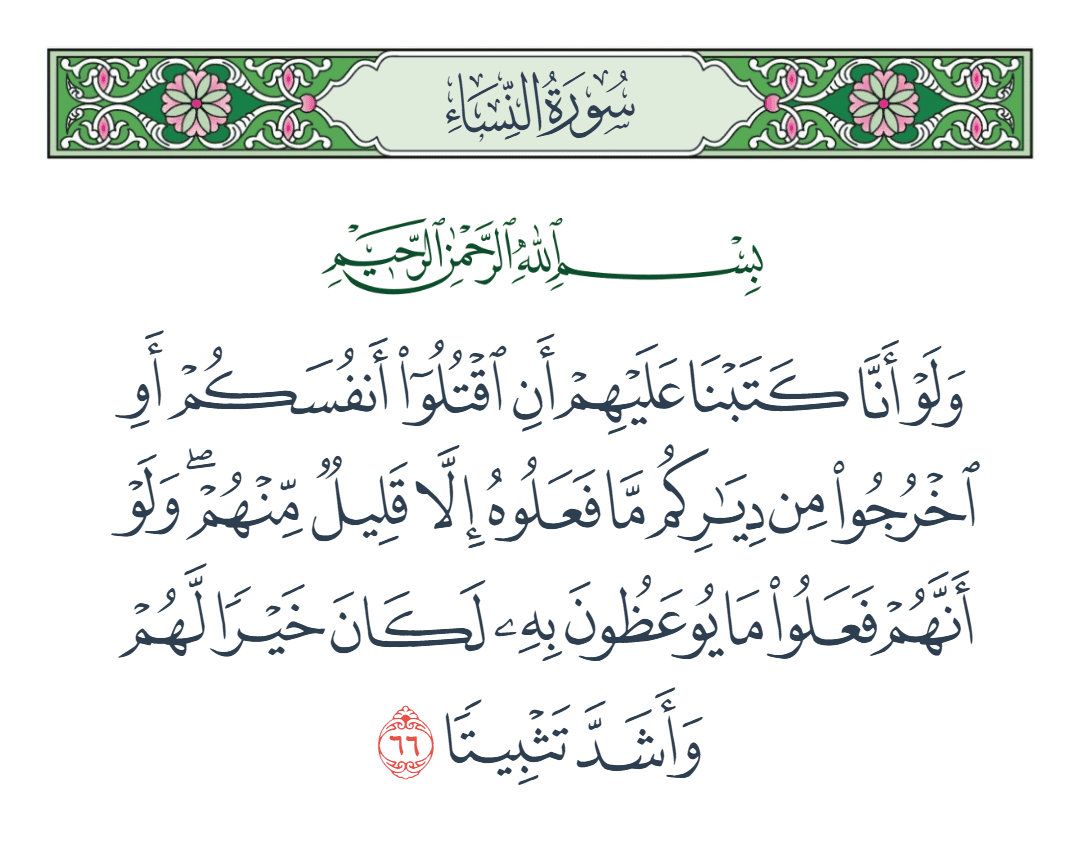 سُورَةُ النِّسَاءِ
بِسْمِ ٱللَّهِ ٱلرَّحْمَٰنِ ٱلرَّحِيمِ
وَلَوْ أَنَّا كَتَبْنَا عَلَيْهِمْ أَنِ ٱقْتُلُوٓا۟ أَنفُسَكُمْ أَوِ
ٱخْرُجُوا۟ مِن دِيَـٰرِكُم مَّا فَعَلُوهُ إِلَّا قَلِيلٌ مِّنْهُمْ ۖ وَلَوْ
أَنَّهُمْ فَعَلُوا۟ مَا يُوعَظُونَ بِهِۦ لَكَانَ خَيْرًا لَّهُمْ
وَأَشَدَّ تَثْبِيتًا ٦٦